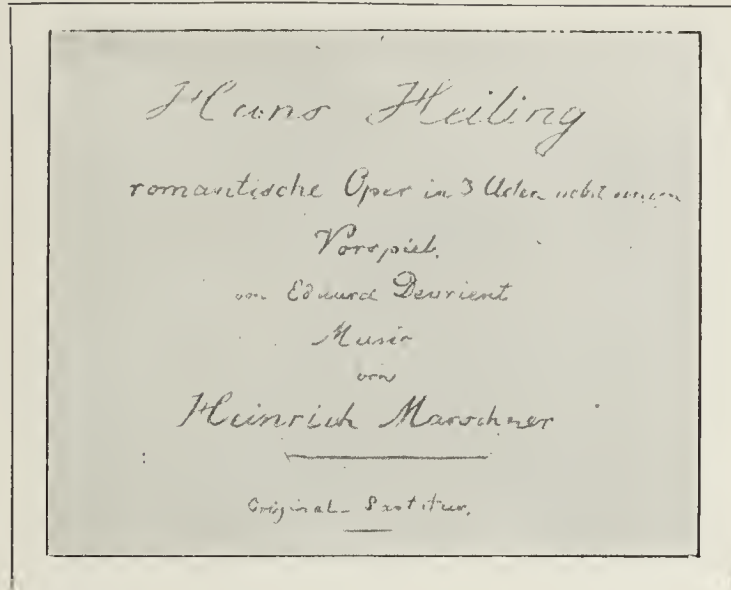 Hans Heiling
romantische Oper in 3 Akten nebst einem
Vorspiel.
von Eduard Devrient
Musik
von
Heinrich Marschner
Original-Partitur.